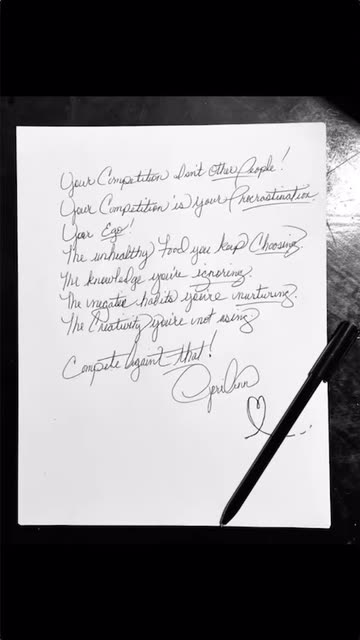 Your Competition isn't other People!
Your Competition is Your Procrastination.
Your Ego!
The unhealthy Food you keep Choosing.
The knowledge you're ignoring
The negative habits you're nurturing.
The Creativity you're not using
Compete Against that!